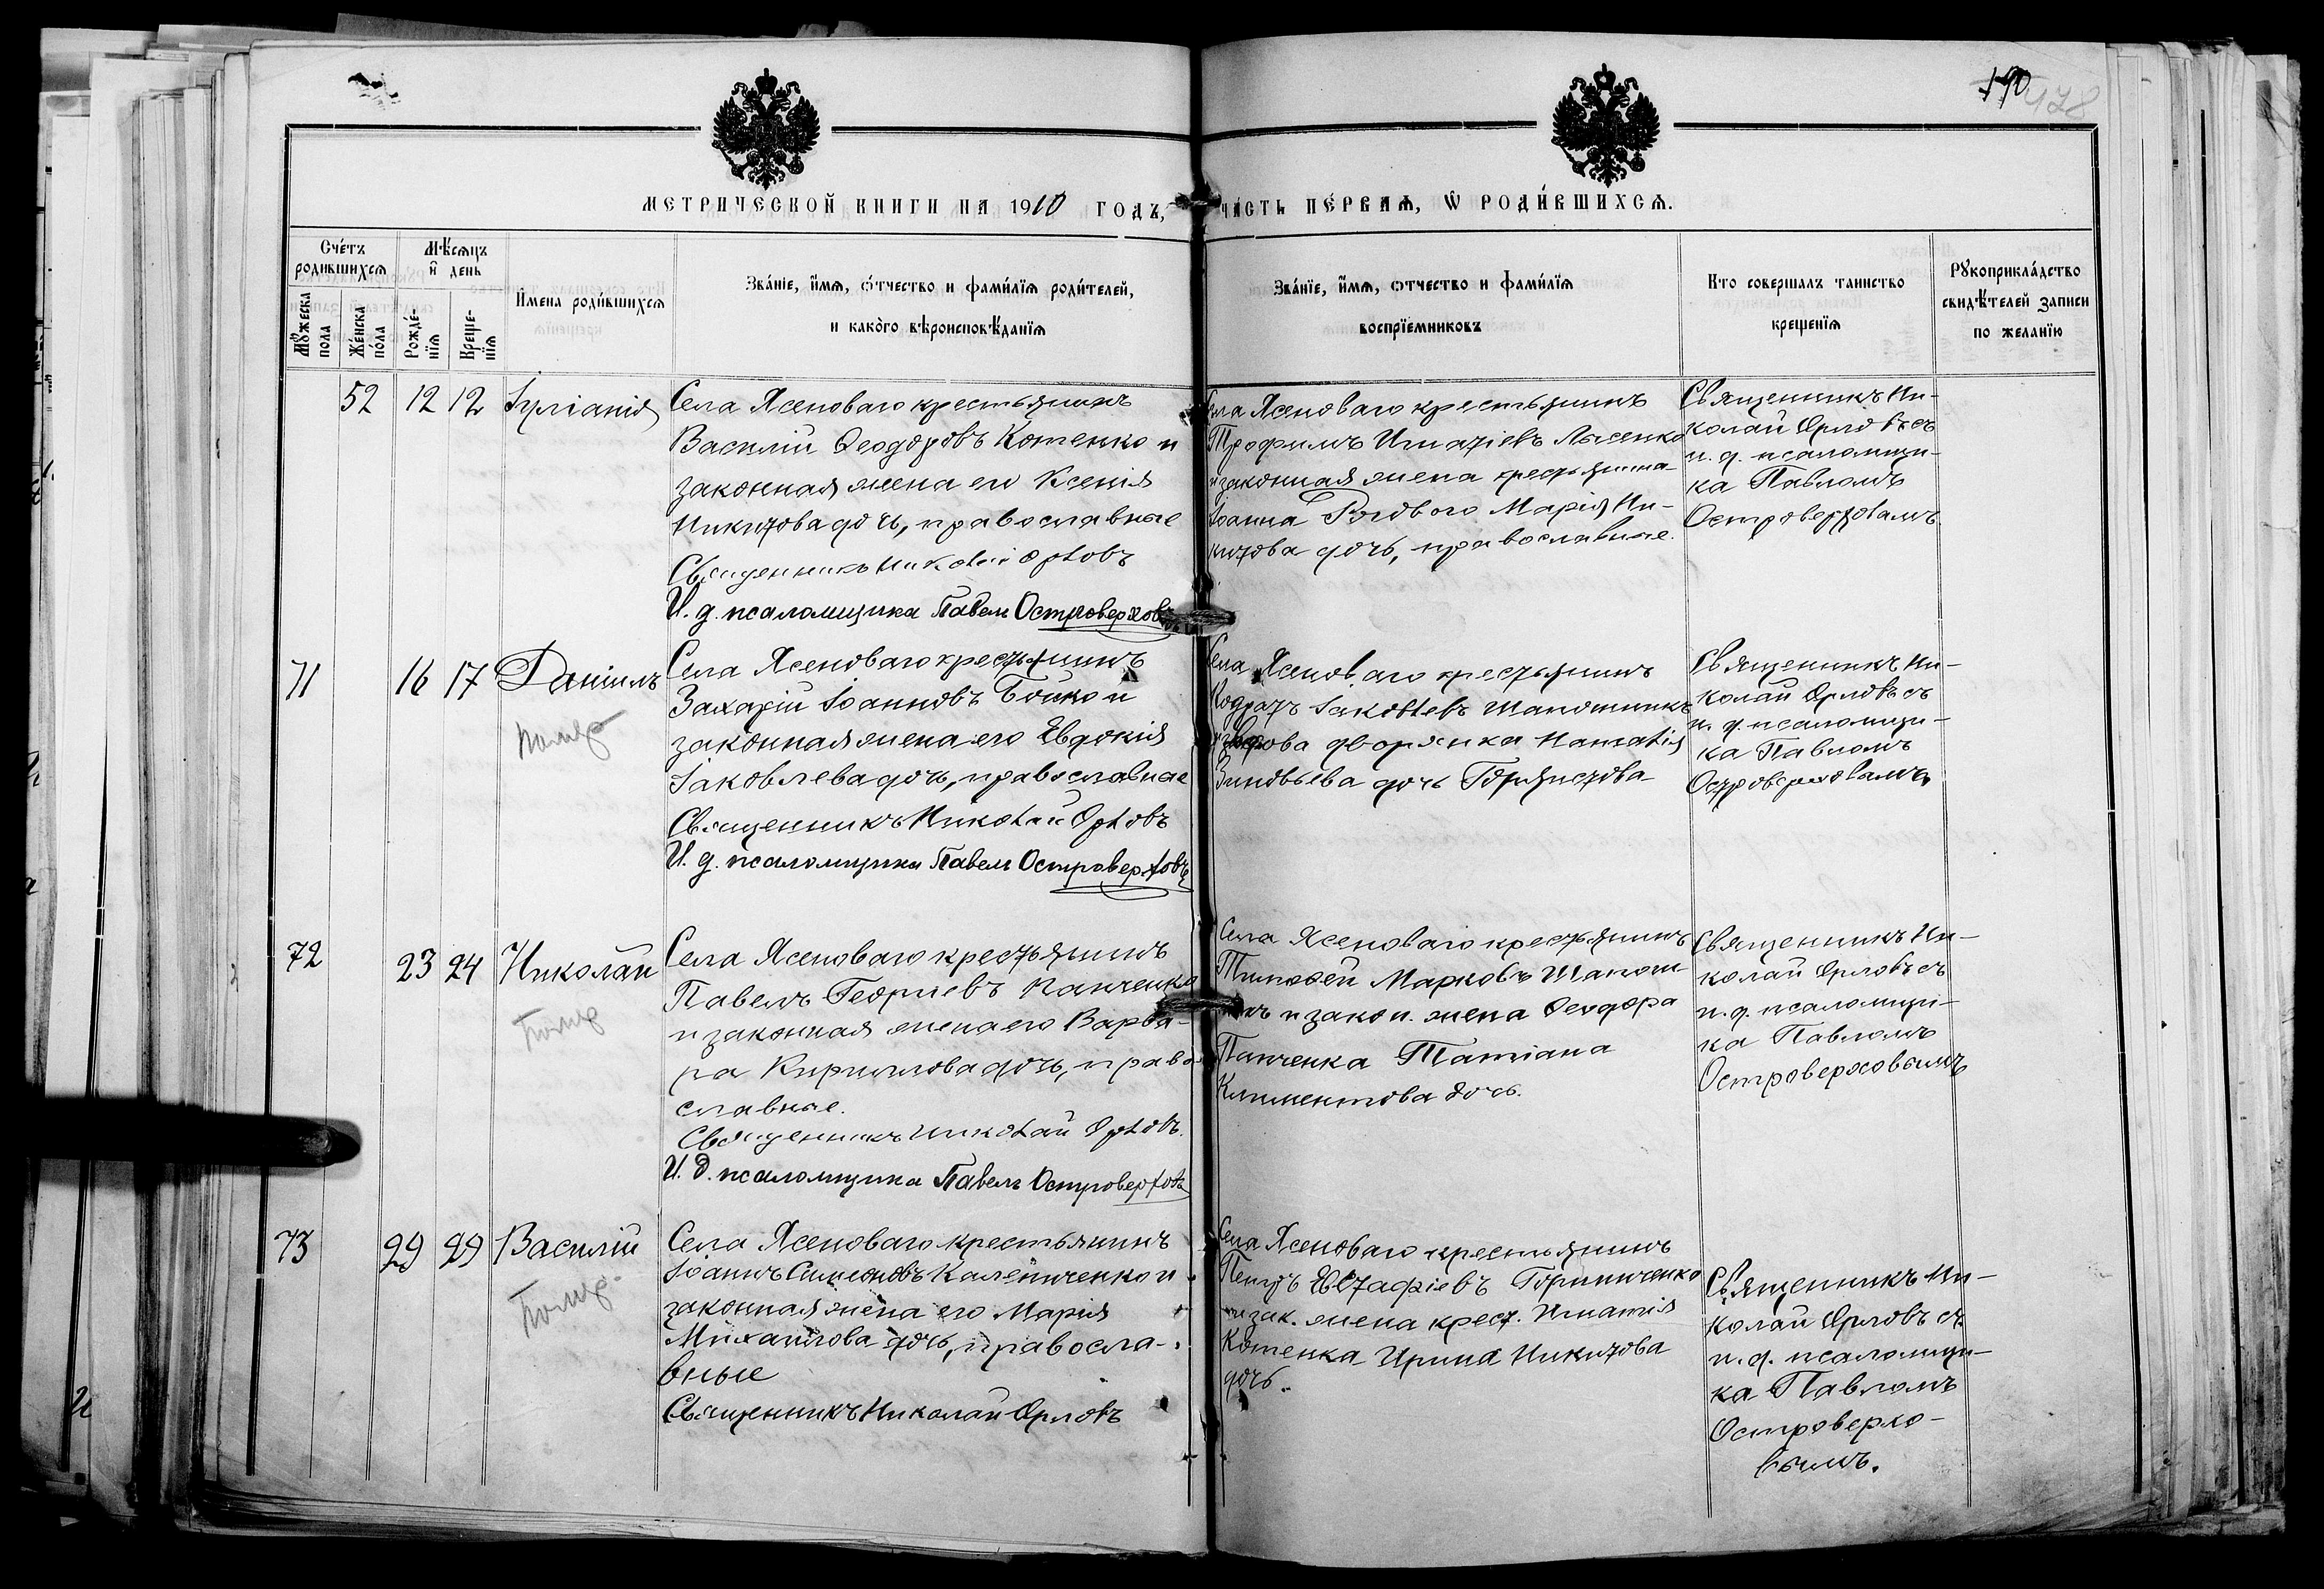 190
478
МЕТРИЧЕСКОЙ КНИГИ НА 1910 ГОДЪ,
ЧАСТЬ ПЕРВАЯ, Ѡ РОДИВШИХСЯ.
Счетъ родившихся
Мѣсяцъ и день
Имена родившихся
Званіе, имя, отчество и фамилія родителей,
и какого вѣроисповѣданія
Мужеска пола
Женска пола
Рожденія
Крещенія
Званіе, имя, отчество и фамилія
воспріемниковъ
Кто совершалъ таинство
крещенія
Рукоприкладство
свидѣтелей записи
по желанію
52 12 12 Іуліанія
Села Ясеноваго крестьянинъ
Василій Ѳеодоровъ Котенко и
законная жена его Ксенія
Никитова дочь, православные
Священникъ Николай Орловъ
И. д. псаломщика Павелъ Островерховъ
Села Ясеноваго крестьянинъ
Трофимъ Игнатіевъ Лысенко
и законная жена крестьянина
Іоанна Рогового Марія Ни-
китова дочь, православные.
Священникъ Ни-
колай Орловъ съ
и. д. псаломщи-
ка Павломъ
Островерховымъ
71 16 17 Даніилъ
Помер
Села Ясеноваго крестьянинъ
Захарій Іоанновъ Бойко и
законная жена его Евдокія
Іаковлева дочь, православные
Священникъ Николай Орловъ
И. д. псаломщика Павелъ Островерховъ
Села Ясеноваго крестьянинъ
Кодратъ Іаковлевъ Шапошникъ
дворянка Наталія
Зиновьева дочь
Священникъ Ни-
колай Орловъ съ
и. д. псаломщи-
ка Павломъ
Островерховымъ
72 23 24 Николай
Помер
Села Ясеноваго крестьянинъ
Павелъ Георгіевъ Панченко
и законная жена его Варва-
ра Кириллова дочь, право-
славные.
Священникъ Николай Орловъ.
И. д. псаломщика Павелъ Островерховъ
Села Ясеноваго крестьянинъ
Тимоѳей Марковъ Шапош
никъ и закон. жена Ѳеодора
Панченка Татіана
Климентова дочь.
Священникъ Ни-
колай Орловъ съ
и. д. псаломщи-
ка Павломъ
Островерховымъ
73 29 29 Василій
Помер.
Села Ясеноваго крестьянинъ
Іоаннъ Симеоновъ Калениченко и
законная жена его Марія
Михаилова дочь, правосла-
вные
Священникъ Николай Орловъ
Села Ясеноваго крестьянинъ
Петръ Евстафіевъ Гориниченко
и зак. жена крест. Игнатія
Котенка Ирина Никитова
дочь.
Священникъ Ни-
колай Орловъ съ
и. д. псаломщи-
ка Павломъ
Островерхо-
вымъ.